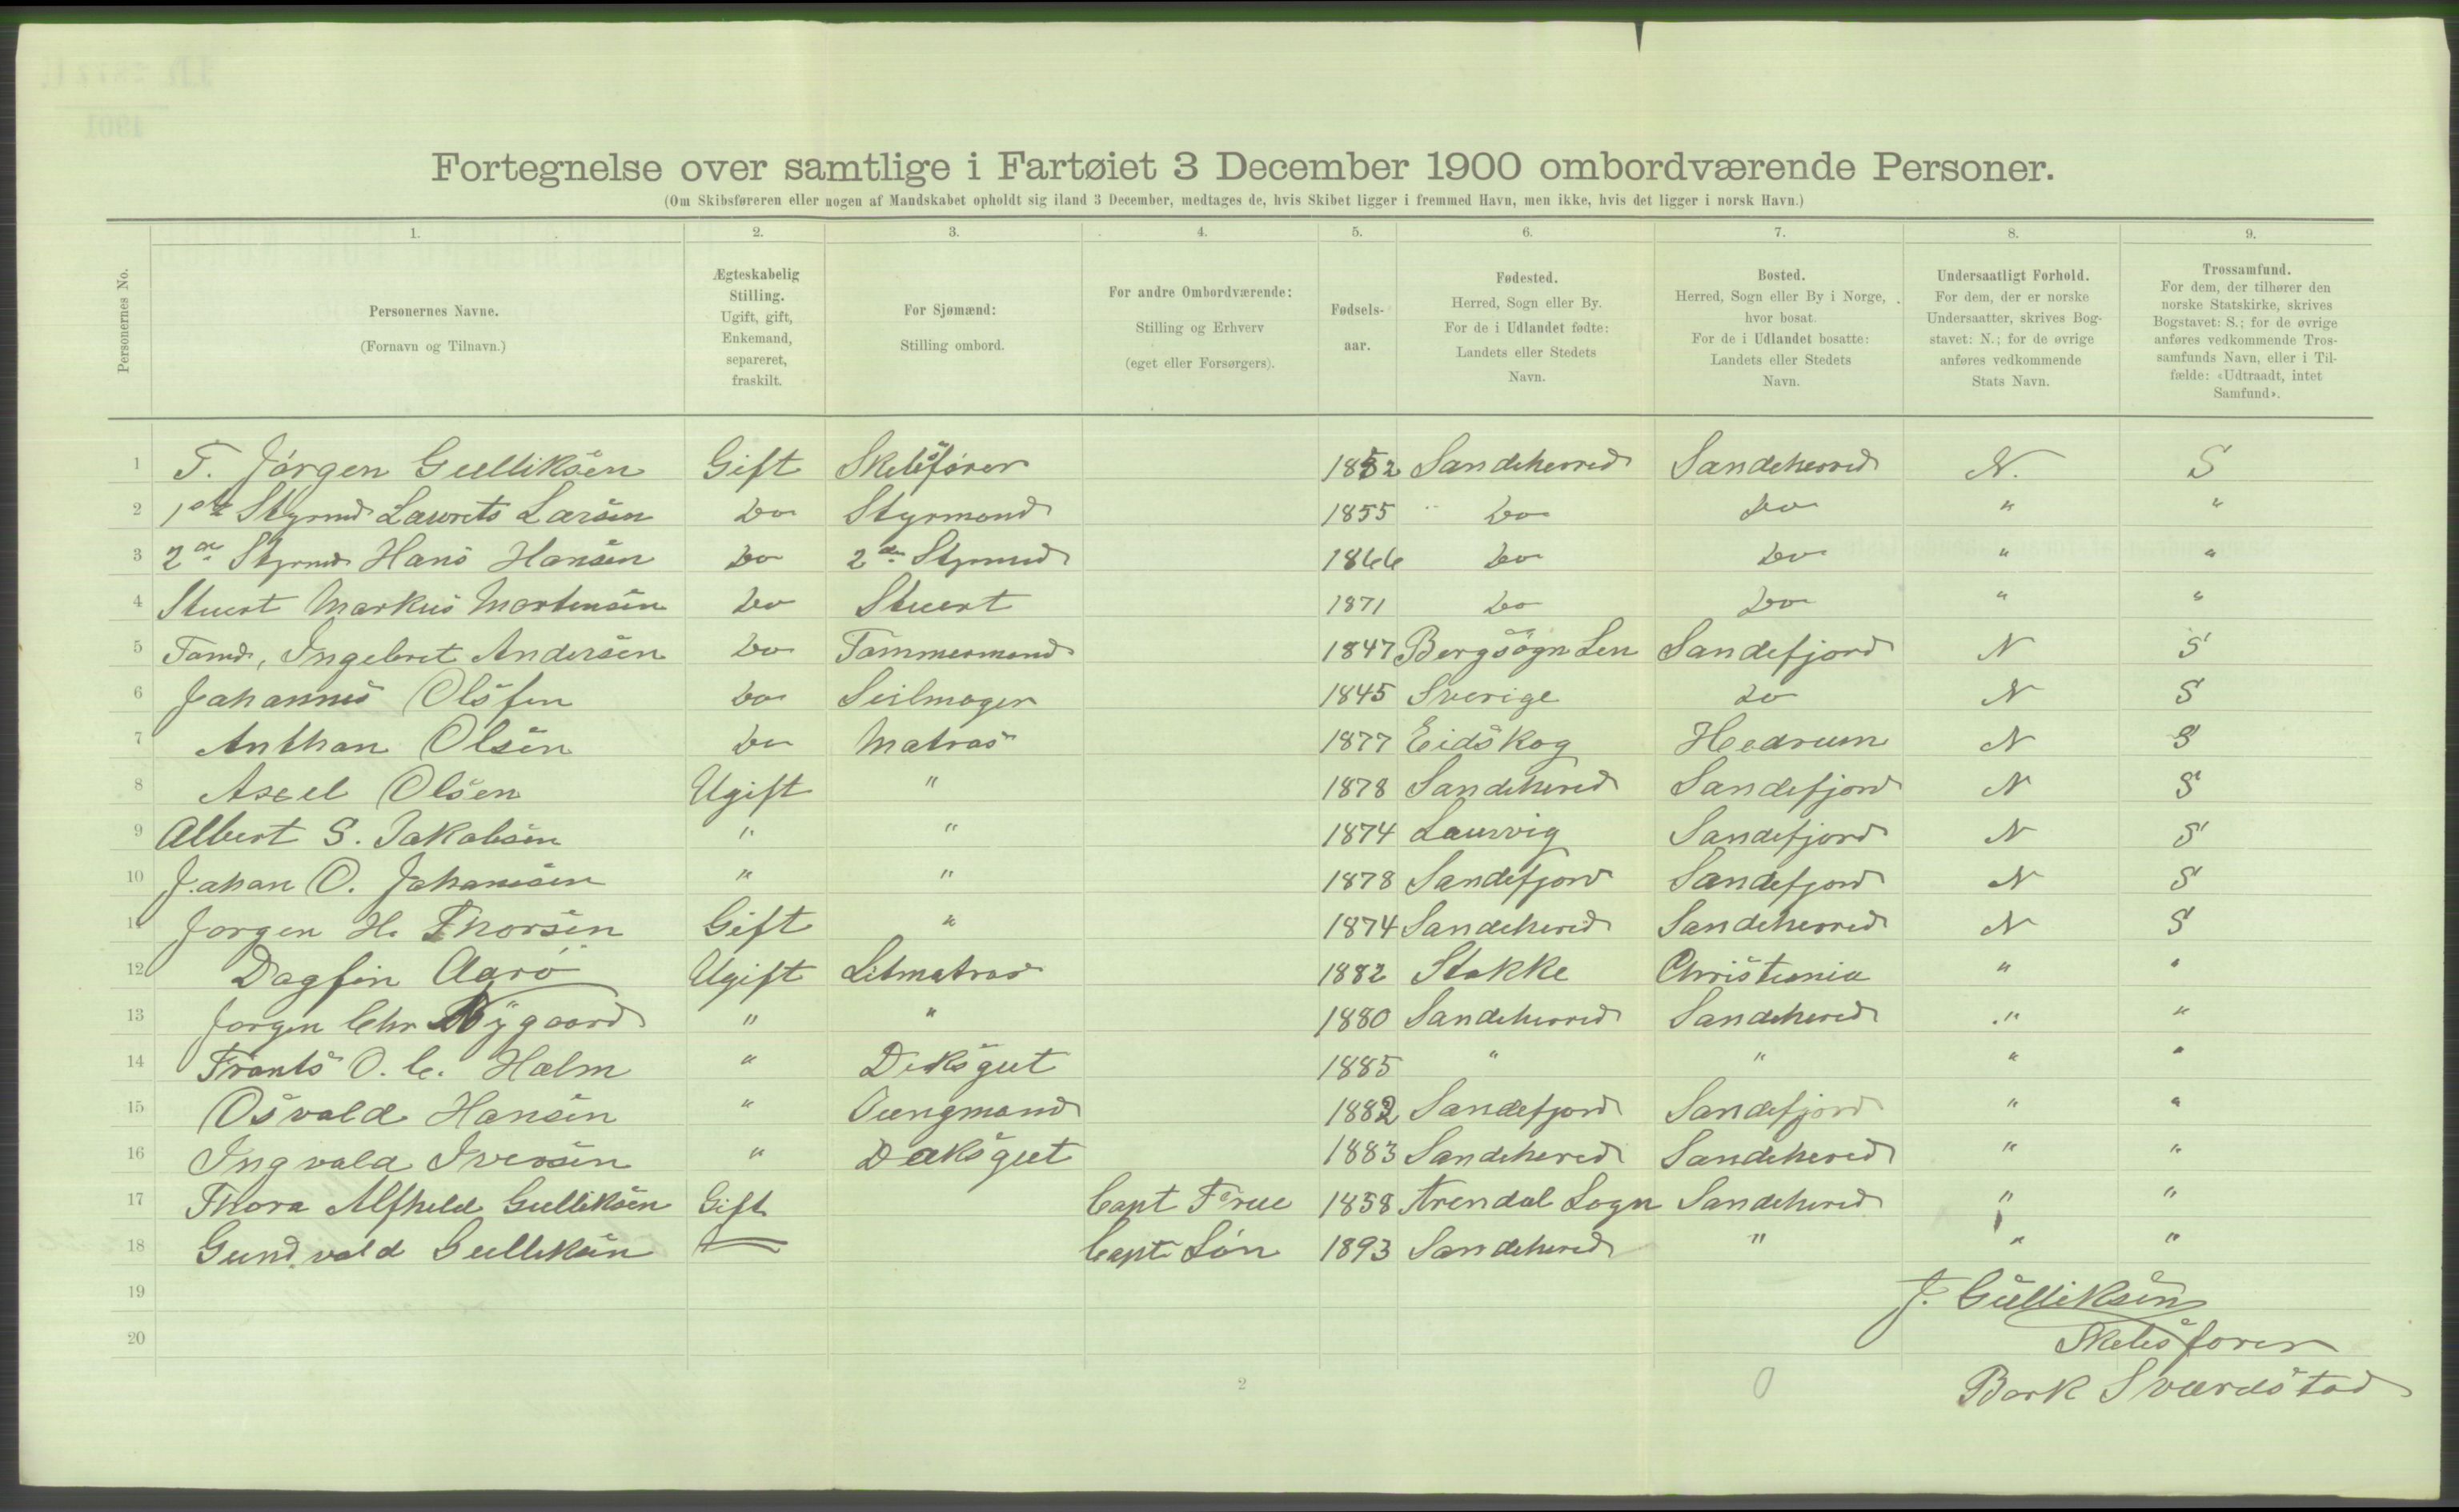 Fortegnelse over samtlige i Fartøiet 3 December 1900 ombordværende Personer.
(Om Skibsføreren eller nogen af Mandskabet opholdt sig iland 3 December, medtages de, hvis Skibet ligger i fremmed Havn, men ikke, hvis det ligger i norsk Havn.)
1. 2. 3. 4. 5. 6. 7. 8. 9.
Personernes No.
Personernes Navne.
(Fornavn og Tilnavn.)
Ægteskabelig
Stilling.
Ugift, gift,
Enkemand,
separeret,
fraskilt.
For Sjømænd:
Stilling ombord.
For andre Ombordværende:
Stilling og Erhverv
(eget eller Forsørgers).
Fødsels-
aar.
Fødested.
Herred, Sogn eller By.
For de i Udlandet fødte:
Landets eller Stedets
Navn.
Bosted.
Herred, Sogn eller By i Norge,
hvor bosat.
For de i Udlandet bosatte:
Landets eller Stedets
Navn.
Undersaatligt Forhold.
For dem, der er norske
Undersaatter, skrives Bog-
stavet: N.; for de øvrige
anføres vedkommende
Stats Navn.
Trossamfund.
For dem, der tilhører den
norske Statskirke, skrives
Bogstavet: S.; for de øvrige
anføres vedkommende Tros-
samfunds Navn, eller i Til-
fælde: «Udtraadt, intet
Samfund».
1 T. Jörgen Gulliksen Gift Skibsfører 1852 Sandeherred Sandeherred N. S
2 1ste Styrmd Laurits Larsen Do Styrmand 1855 Do Do " "
3 2de Styrmd Hans Hansen Do 2de Styrmd 1866 Do Do " "
4 Stuert Markus Mortensen Do Stuert 1871 Do Do " "
5 Tømd, Ingebret Andersen Do Tømmermand 1847 Bergsogn Len Sandefjord N S
6 Johannes Olsen Do Seilmager 1845 Sverige Do N S
7 Anthon Olsen Do Matros 1877 Eidskog Hedrum N S
8 Axel Olsen Ugift " 1878 Sandeherred Sandefjord N S
9 Albert S. Jakobsen " " 1874 Laurvig Sandefjord N S
10 Johan O. Johansen " " 1878 Sandefjord Sandefjord N S
11 Jorgen H. Thorsen Gift " 1874 Sandeherred Sandeherred N S
12 Dagfin Aarö Ugift Letmatros 1882 Stokke Christiania " "
13 Jorgen Chr Nygaard " " 1880 Sandeherred Sandeherred " "
14 Frants O. C. Holm " Deksgut 1885 " " " "
15 Osvald Hansen " Jungmand 1882 Sandefjord Sandefjord " "
16 Ingvald Iversen " Dæksgut 1883 Sandeherred Sandeherred " "
17 Thora Alfhild Gulliksen Gift Capt Frue 1858 Arendal Sogn Sandeherred " "
18 Gundvald Gulliksen Capt Sön 1893 Sandeherred " " "
19 J. Gulliksen
20 Skibsfører
2
Bark Sværdstad